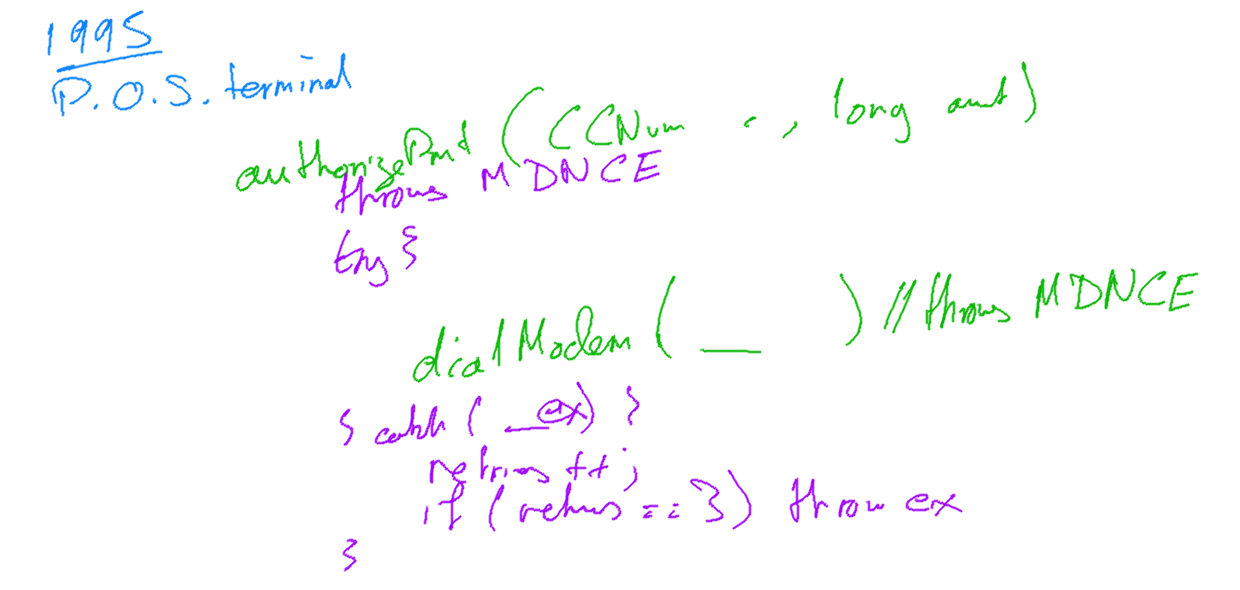 1995
P.O.S. terminal
authorizePmt ( CCNum - , long amt )
throws MDNCE
try {
dialModem ( __ ) // throws MDNCE
} catch ( __ex) {
retries ++ ;
if ( retries == 3) throw ex
}